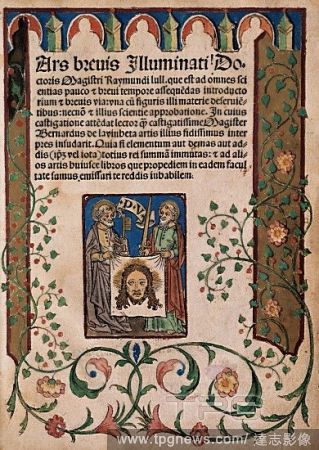 Ars brevis Illuminati Do-
ctoris Magistri Raymundi lull. que est ad omnes sci
entias pauco & brevi tempore assequēdas introducto
rium & brevis via: vna cū figuris illi materie deservīē
tibus: necnō & illius scientie approbatione. In cuius
castigatione attēdat lector q̄ castigatissime Magister
Bernardus de lavinheta artis illius fidissimus inter
pres insudarit. Quia si elementum aut demas aut ad-
dis (ip̄s vel iota) totius rei summā immutas: & ad ali-
os artis huiusce libros que propediem in eadem facul
tate sumus emissari te reddis inhabilem.
PAV
TPG
www.tpgnews.com / 達志影像